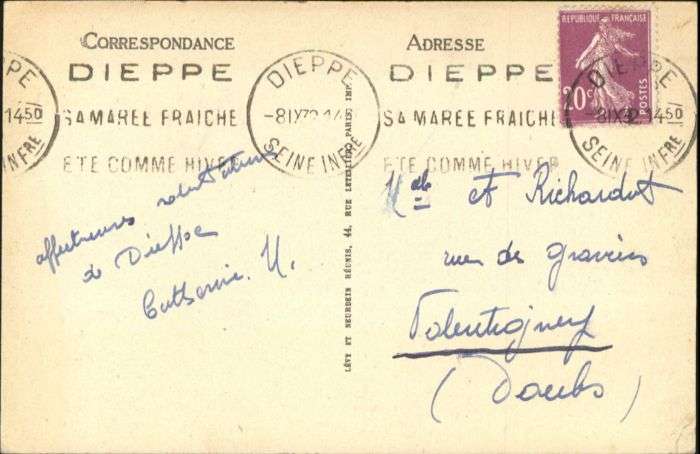 CORRESPONDANCE
ADRESSE
RÉPUBLIQUE FRANÇAISE
20c
POSTES
DIEPPE
DIEPPE
SA MARÉE FRAICHE
SA MARÉE FRAICHE
ÉTÉ COMME HIVER
ÉTÉ COMME HIVER
14 50
SEINE INFRE
DIEPPE
-8 IX 32 14
SEINE INFRE
DIEPPE
-8 IX 32 14 50
SEINE INFRE
affectueuses salutations
de Dieppe
Catherine. H.
LÉVY ET NEURDEIN RÉUNIS, 44, RUE LETELLIER, PARIS, IMP.
et Richardot
rue de graviers
Valentigney
(Doubs)